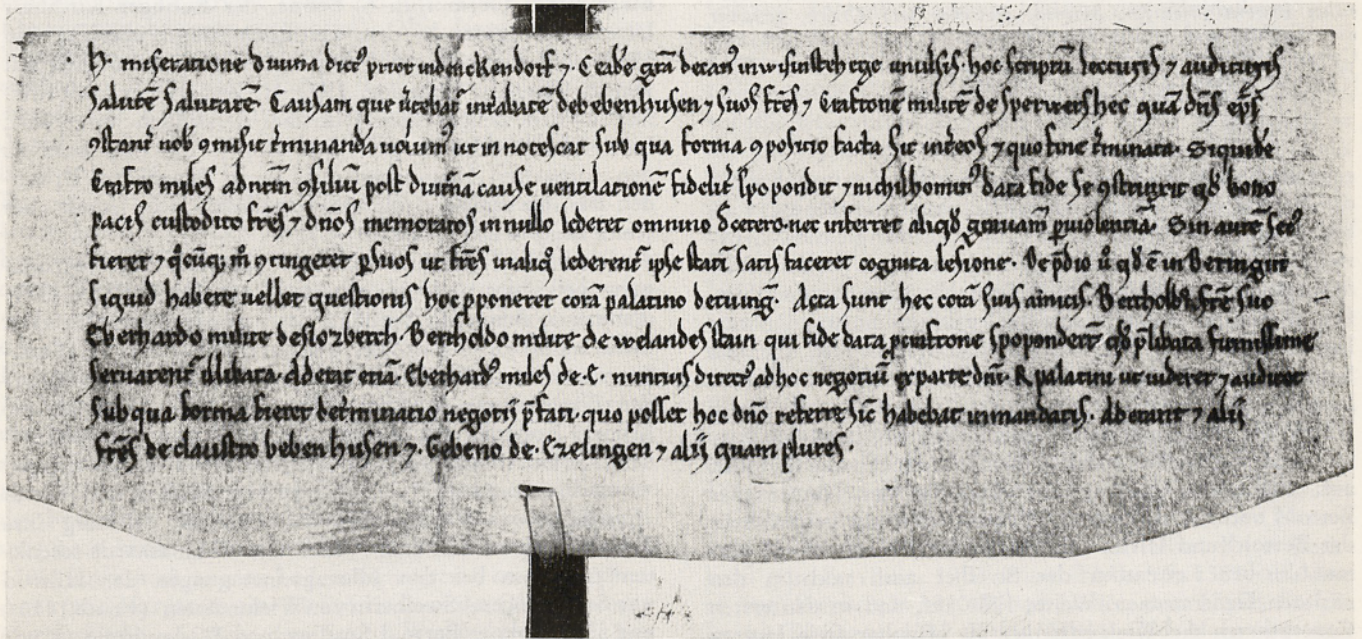 H. miseratione diuina dict᷒ prior in denckendorf ⁊. C eadē gr̄a decan᷒ in wisinsteh ege uniūsis. hoc scriptū lecturis ⁊ audituris
salutē salutarē. Causam que ūtebat᷑ int̄ abatē de bebenhusen ⁊ suos fr̄es ⁊ Craftonē militē de sperwershec quā dn̄s ep̄s
ꝯstant̄ nob̄ ꝯmisit t̄minandā uolum᷒ ut innotescat sub qua forma ꝯpositio facta sit int̄ eos ⁊ quo fine t̄minata. Siquidē
Crafto miles ad nr̄m ꝯsiliū post diutinā cause uentilationē fidelit̄ spopondit ⁊ nichilhomin᷒ data fide se ꝯstrinxit qd̄ bono
pacis custodito fr̄es ⁊ dn̄os memoratos in nullo lederet omnino d̄ cetero. nec inferret aliqd̄ grauam̄ ꝑ uiolentiā. Sin autē sec᷒
fieret ⁊ q͛cūq; m̊ ꝯtingeret ꝑ suos ut fr̄es in aliq̊ lederent᷑ ipse stati satis faceret cognita lesione. De p̄dio ū qd̄ ē in Beringin
siquid habere uellet questionis hoc ꝓponeret corā palatino de tuinḡ. Acta sunt hec corā suis amicis. Bertholdo fr̄e suo
Eberhardo milite de slozberch. Bertholdo milite de welandesstain qui fide data ꝓ craftone spoponder̄t qd̄ p̄libata firmissime
seruarent᷑ illibata. Aderat etiā. Eberhard᷒ miles de. E. nuntius direct᷒ ad hoc negotiū ex parte dn̄i. R palatini ut uideret ⁊ audiret
sub qua forma fieret det̄minatio negotij p̄fati. quo posset hoc dn̄o referre sic̄ habebat in mandatis. Aderant ⁊ alij
fr̄es de claustro bebenhusen ⁊. Gebeno de. Ezelingen ⁊ alij quam plures.